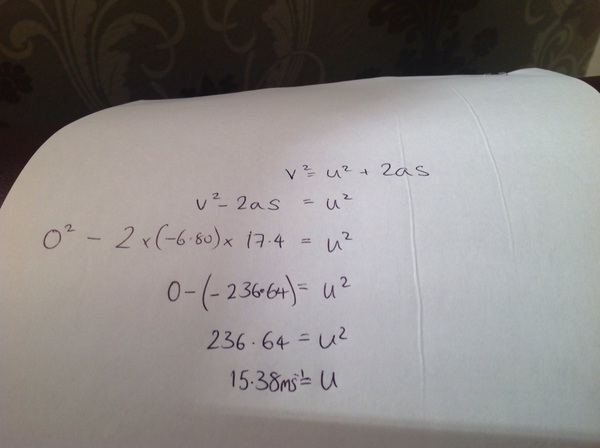 v² = u² + 2as
v² - 2as = u²
0² - 2 × (-6.80) × 17.4 = u²
0 - (-236.64) = u²
236.64 = u²
15.38ms⁻¹ = u